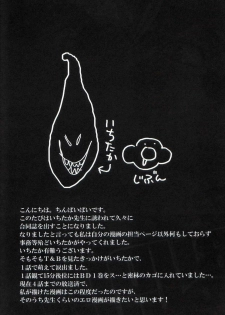 いちたか
じぶん
こんにちは、ちんぱいぱいです。
このたびはいちたか先生に誘われて久々に
合同誌を出すことになりました。
なりましたと言っても私は自分の漫画の担当ページ以外何もしておらず
事務等殆どいちたかがやってくれました。
いちたか有難うございます。
そもそもT&Bを見たきっかけがいちたかで、
1話で萌えて涙出ました。
1話観て15分後位にはBD1巻をス…と密林のカゴに入れておりました。
現在4話までの放送済で、
私が描けた漫画はこの程度だったのですが、
そのうち先生くらいのエロ漫画が描きたいと思います！